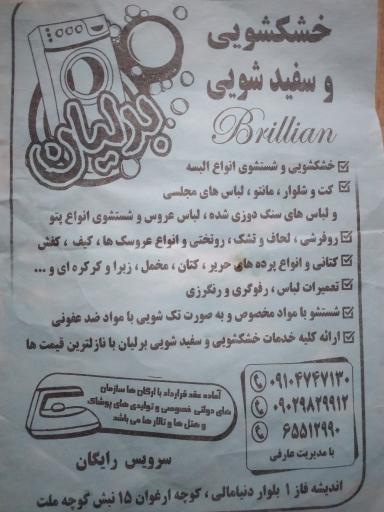 خشکشویی
و سفید شویی
برلیان
Brillian
خشکشویی و شستشوی انواع البسه
کت و شلوار ، مانتو ، لباس های مجلسی
و لباس های سنگ دوزی شده ، لباس عروس و شستشوی انواع پتو
روفرشی ، لحاف و تشک ، روتختی و انواع عروسک ها ، کیف ، کفش
کتانی و انواع پرده های حریر ، کتان ، مخمل ، زبرا و کرکره ای و ...
تعمیرات لباس ، رفوگری و رنگرزی
شستشو با مواد مخصوص و به صورت تک شویی با مواد ضد عفونی
ارائه کلیه خدمات خشکشویی و سفید شویی برلیان با نازلترین قیمت ها
۰۹۱۰۴۷۴۷۱۳۰
۰۹۰۲۹۸۲۹۹۱۲
۶۵۵۱۲۹۹۰
با مدیریت عارفی
آماده عقد قرارداد با ارگان ها سازمان
های دولتی خصوصی و تولیدی های پوشاک
و هتل ها و تالار ها می باشد
سرویس رایگان
اندیشه فاز ۱ بلوار دنیامالی ، کوچه ارغوان ۱۵ نبش کوچه ملت